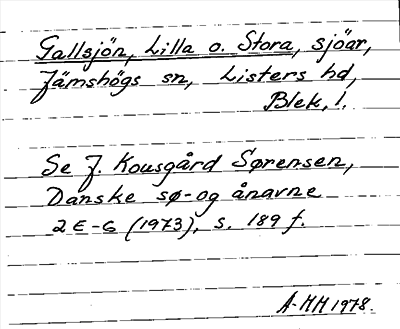 Gallsjön, Lilla o. Stora, sjöar,
Jämshögs sn, Listers hd,
Blek, l.
Se J. Kousgård Sørensen,
Danske sø- og ånavne
2 E-G (1973), s. 189 f.
A-MH 1978.